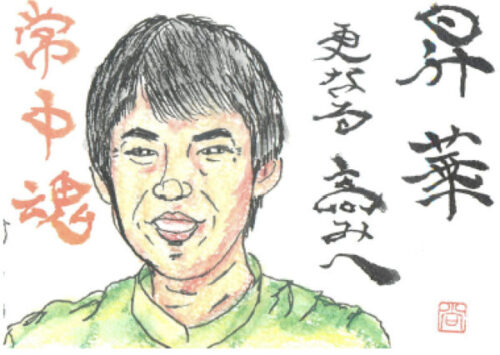 昇華
更なる高みへ
常中魂